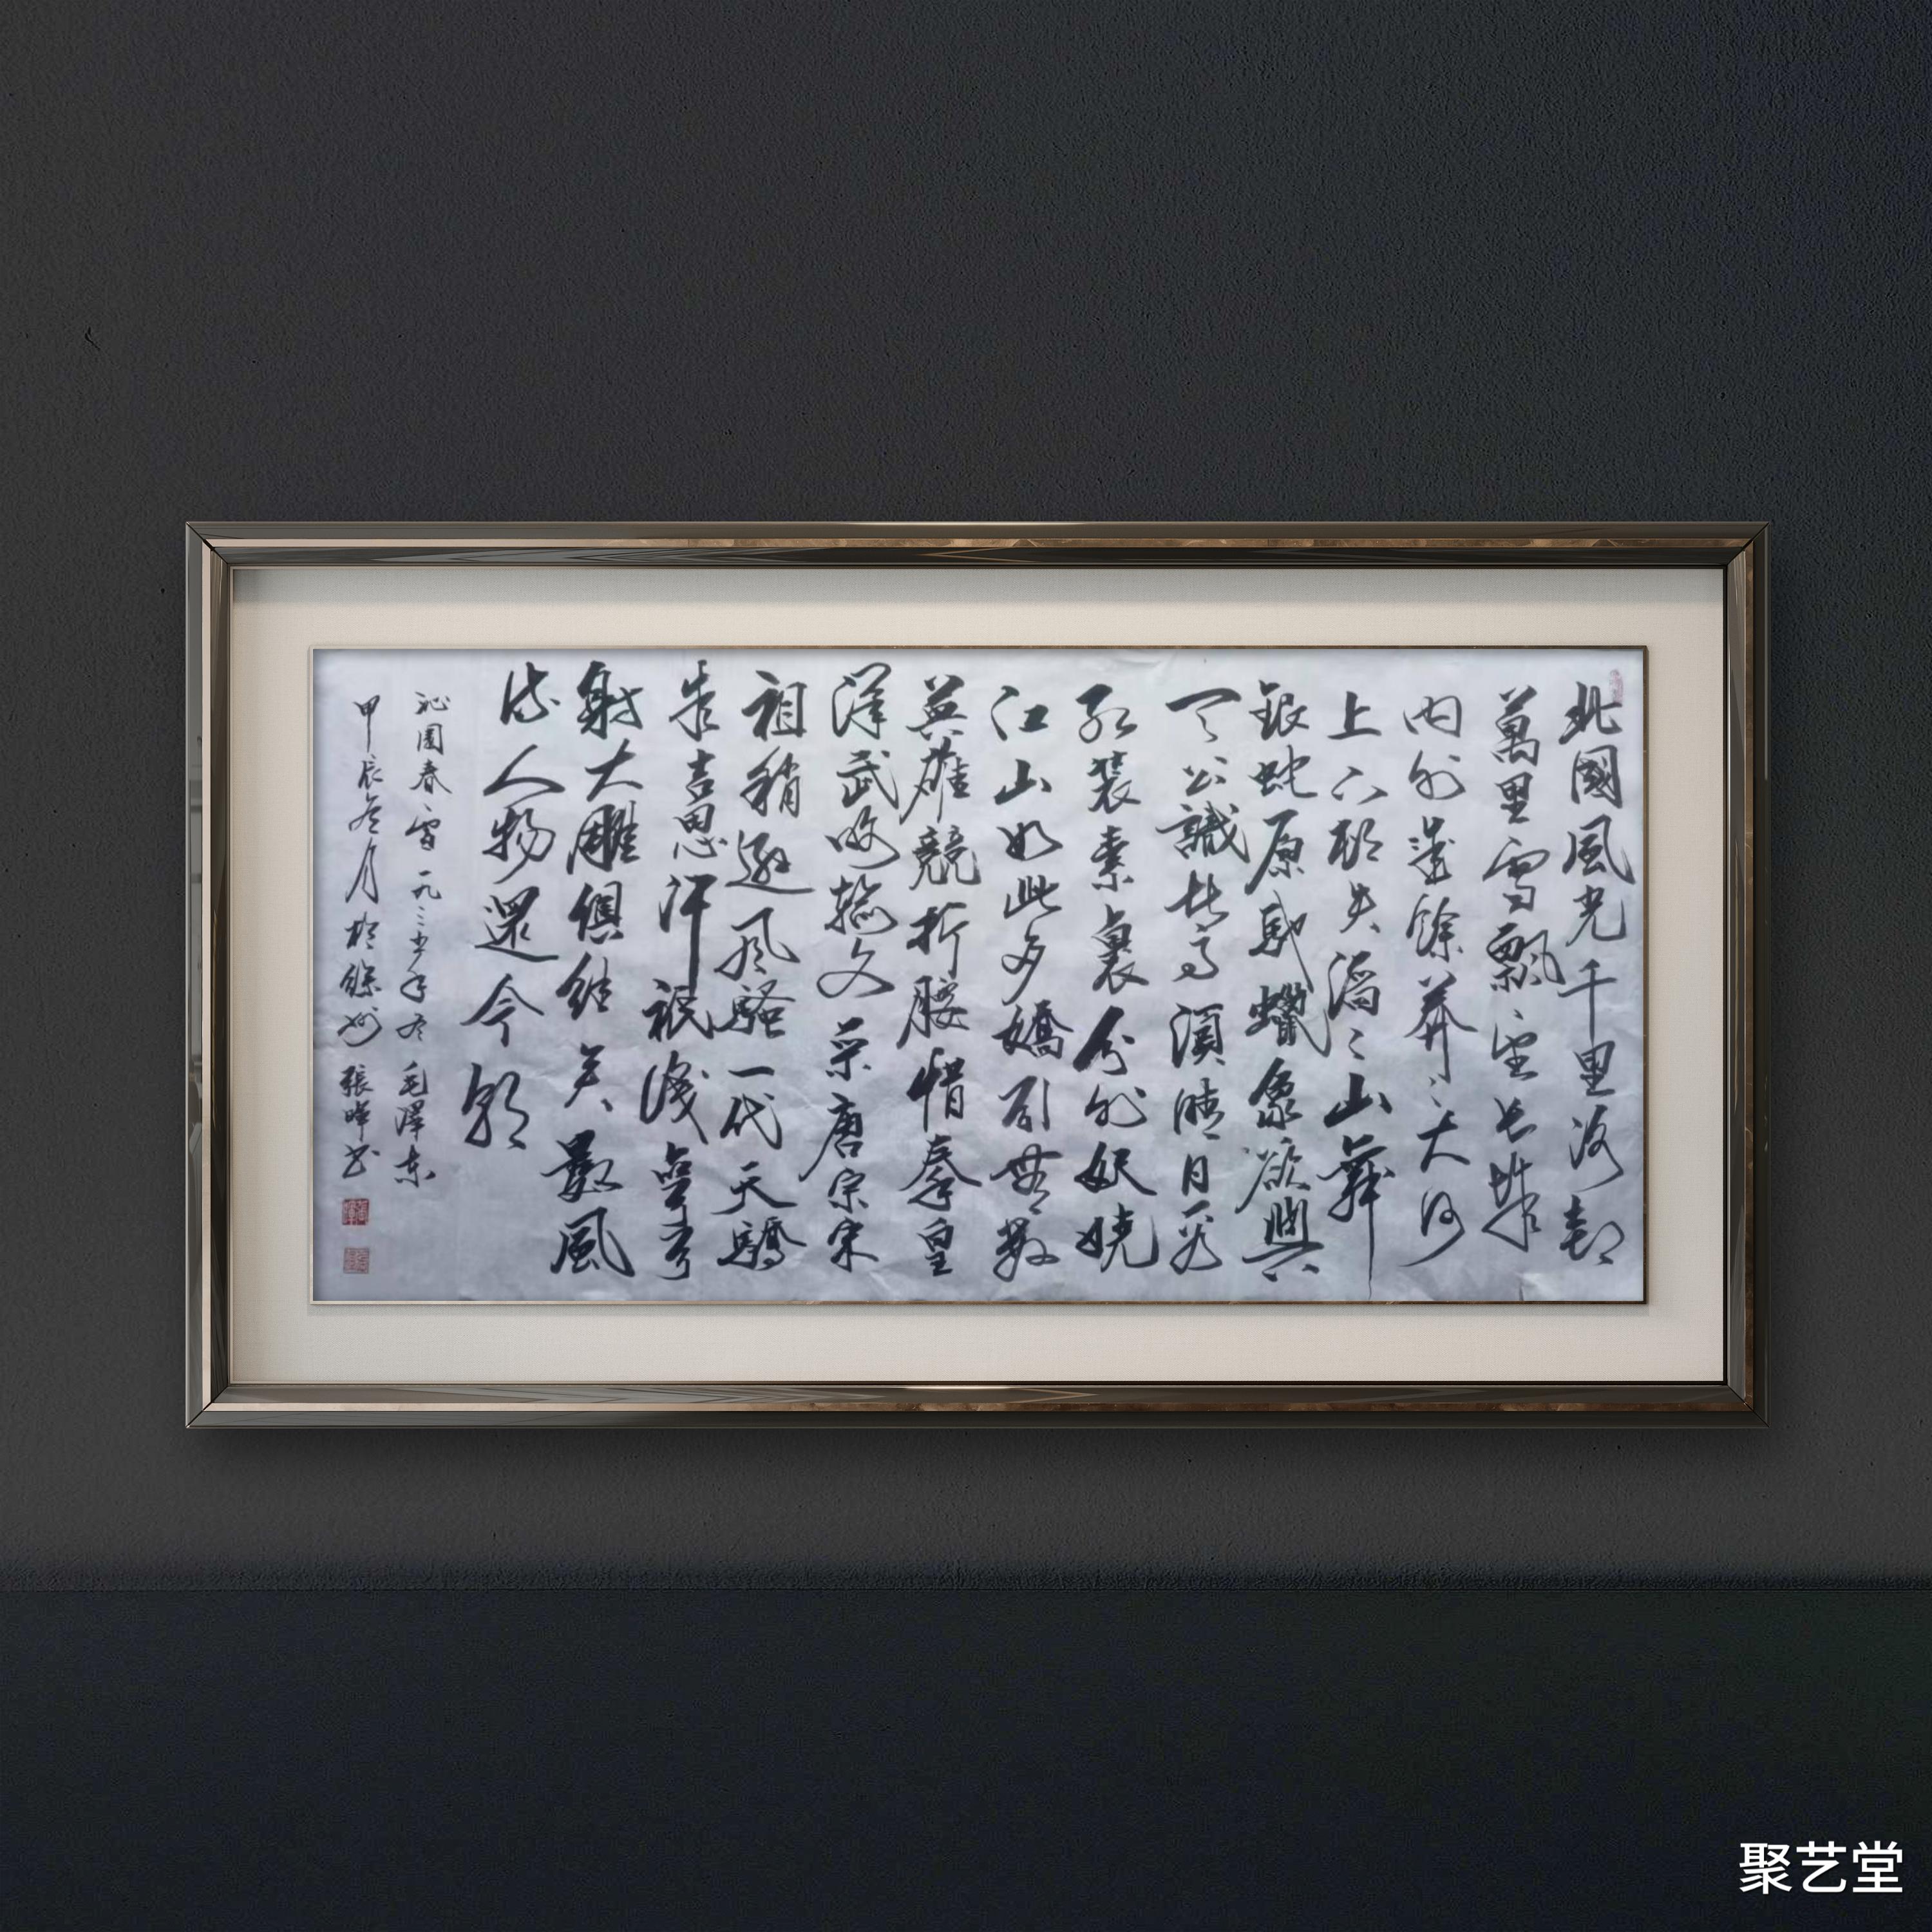 北國風光千里冰封
萬里雪飄望长城
内外惟餘莽〻大河
上下頓失滔〻山舞
銀蛇原馳蠟象欲與
天公試比高須晴日看
紅裝素裹分外妖嬈
江山如此多嬌引無數
英雄競折腰惜秦皇
漢武略輸文采唐宗宋
祖稍遜風騷一代天驕
成吉思汗祇識彎弓
射大雕俱往矣數風
流人物還今朝
沁園春雪一九三年冬 毛澤東
甲辰冬月於州張暉书
聚艺堂